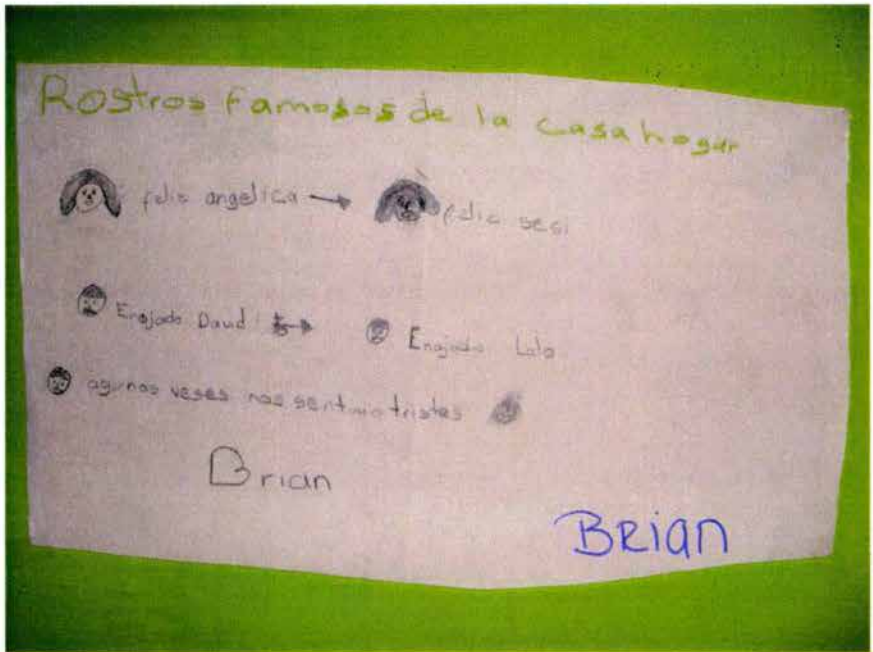 Rostros famosos de la casa hogar
feliz angelica → feliz sesi
Enojado David → Enojado Lalo
agunas veses nos sentimo tristes
Brian
BRIAN